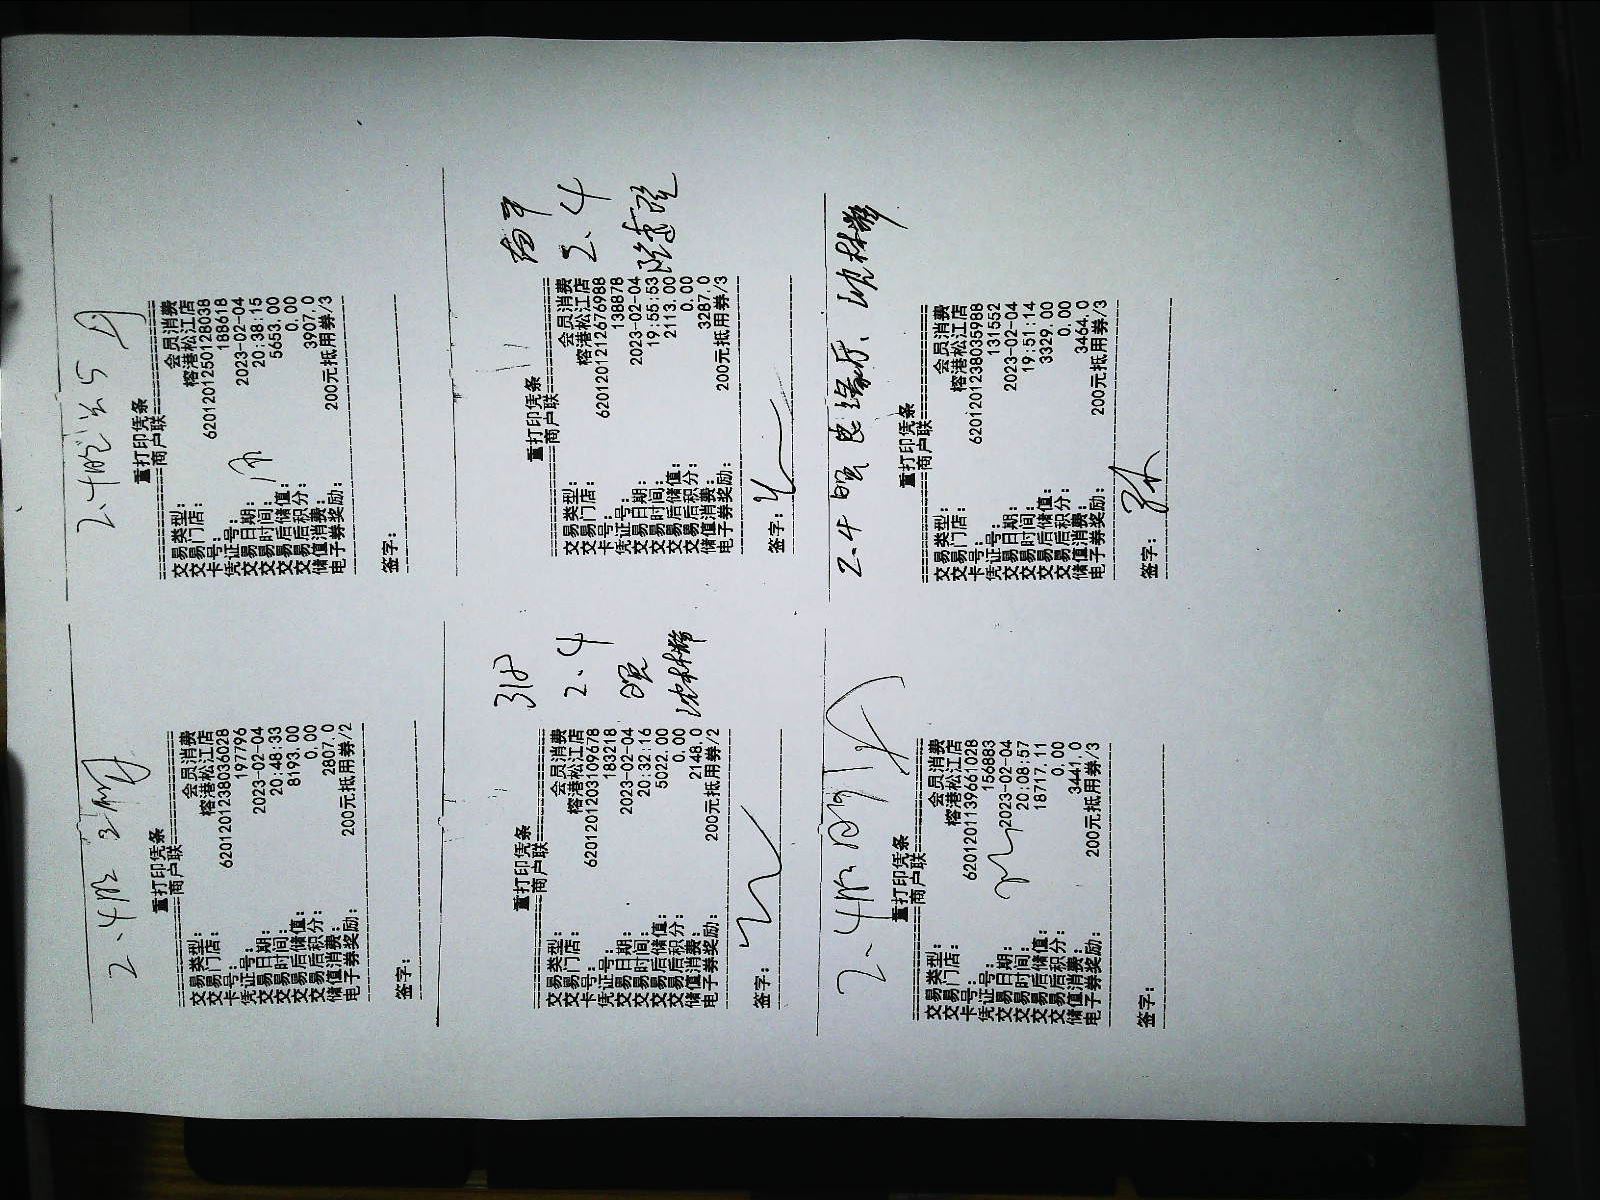 2.4晚
重打印凭条
商户联
交易类型: 会员消费
交易门店: 榕港松江店
卡号: 6201201238036028
凭证号: 197796
交易日期: 2023-02-04
交易时间: 20:48:33
交易后储值: 8193.00
交易后积分: 0.00
储值消费: 2807.0
电子券奖励: 200元抵用券/2
签字:
2.4晚
重打印凭条
商户联
交易类型: 会员消费
交易门店: 榕港松江店
卡号: 6201201250128038
凭证号: 188618
交易日期: 2023-02-04
交易时间: 20:38:15
交易后储值: 5653.00
交易后积分: 0.00
储值消费: 3907.0
电子券奖励: 200元抵用券/3
签字:
318
2.4
晚
重打印凭条
商户联
交易类型: 会员消费
交易门店: 榕港松江店
卡号: 6201201203109678
凭证号: 183218
交易日期: 2023-02-04
交易时间: 20:32:16
交易后储值: 5022.00
交易后积分: 0.00
储值消费: 2148.0
电子券奖励: 200元抵用券/2
签字:
2.4
重打印凭条
商户联
交易类型: 会员消费
交易门店: 榕港松江店
卡号: 6201201212676988
凭证号: 138878
交易日期: 2023-02-04
交易时间: 19:55:53
交易后储值: 2113.00
交易后积分: 0.00
储值消费: 3287.0
电子券奖励: 200元抵用券/3
签字:
2.4晚
重打印凭条
商户联
交易类型: 会员消费
交易门店: 榕港松江店
卡号: 6201201139661028
凭证号: 156883
交易日期: 2023-02-04
交易时间: 20:08:57
交易后储值: 18717.11
交易后积分: 0.00
储值消费: 3441.0
电子券奖励: 200元抵用券/3
签字:
2.4晚
重打印凭条
商户联
交易类型: 会员消费
交易门店: 榕港松江店
卡号: 6201201238035988
凭证号: 131552
交易日期: 2023-02-04
交易时间: 19:51:14
交易后储值: 3329.00
交易后积分: 0.00
储值消费: 3464.0
电子券奖励: 200元抵用券/3
签字: